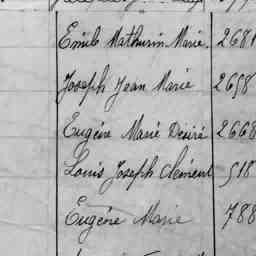 Emile Mathurin Marie. 2681
Joseph Jean Marie 2698
Eugène Marie Désiré 2668
Louis Joseph Clément 518
Eugène Marie 788